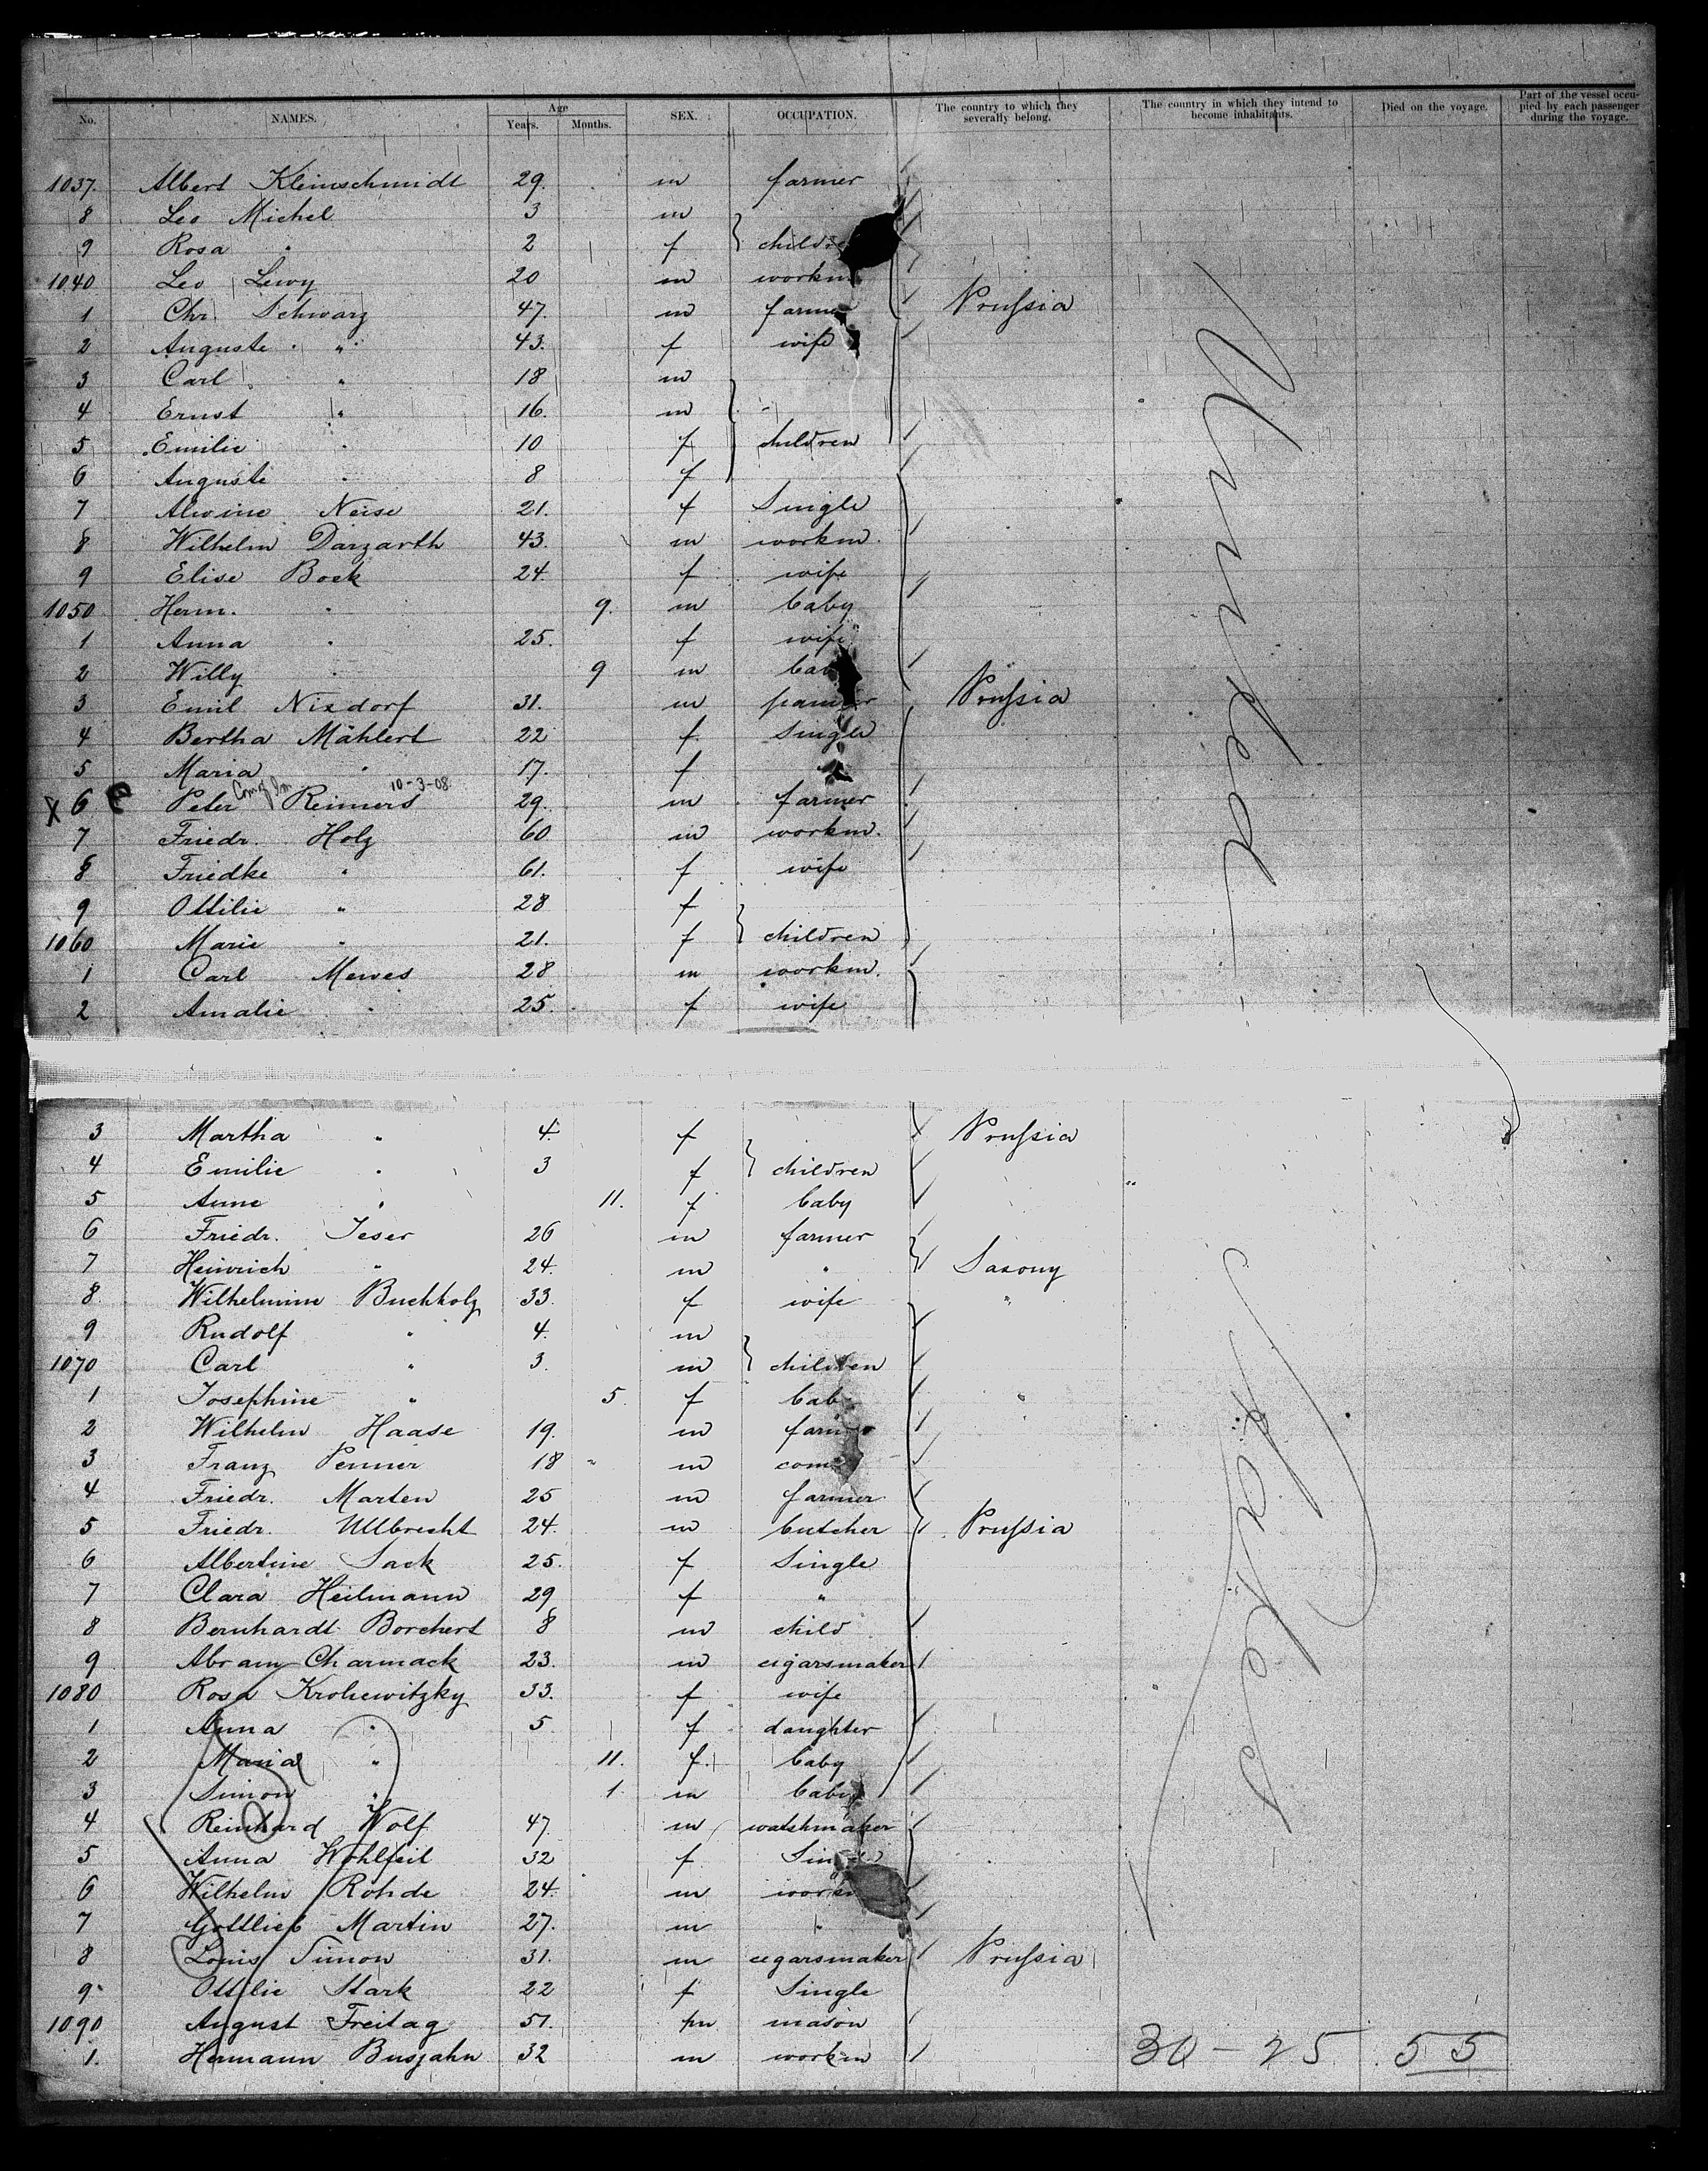 No. NAMES. Age Years. Months. SEX. OCCUPATION. The country to which they severally belong. The country in which they intend to become inhabitants. Died on the voyage. Part of the vessel occupied by each passenger during the voyage.
1037. Albert Kleinschmidt 29. m farmer
8 Leo Michel 3 m
9 Rosa " 2 f children
1040 Leo Lewy 20 m workm
1 Chr. Schwarz 47. m farmer Prussia
2 Auguste " 43. f wife
3 Carl " 18 m
4 Ernst " 16. m
5 Emilie " 10 f children
6 Auguste " 8 f
7 Alwine Neise 21. f Single
8 Wilhelm Darzarth 43. m workm.
9 Elise Bock 24 f wife
1050 Herm. " 9. m baby
1 Anna " 25. f wife
2 Willy " 9 m bab
3 Emil Nixdorf 31. m Prussia
4 Bertha Mählert 22 f Single
5 Maria " 17. f "
X 6 Peter Reimers 10-3-08 29. m farmer
7 Friedr. Holz 60 m workm.
8 Friedke " 61. f wife
9 Ottilie " 28 f
1060 Marie " 21. f children
1 Carl Mewes 28 m workm.
2 Amalie " 25. f wife
3 Martha " 4 f Prussia
4 Emilie " 3 f children
5 Anne " 11. f baby
6 Friedr. Jeser 26 m farmer
7 Heinrich " 24. m " Saxony
8 Wilhelmine Buchholz 33. f wife "
9 Rudolf " 4. m
1070 Carl " 3. m children
1 Josephine " 5. f bab "
2 Wilhelm Haase 19. m farm
3 Franz Penner 18 m com
4 Friedr. Marten 25 m farmer
5 Friedr. Ullbrecht 24. m butcher Prussia
6 Albertine Sack 25. f Single
7 Clara Heilmann 29 f "
8 Bernhardt Borchert 8 m child
9 Abram Charmack 23. m cigarsmaker
1080 Rosa Krohewitzky 33. f wife
1 Anna " 5 f daughter
2 Maria " 11. f. baby
3 Simon " 1. m baby
4 Reinhard Wolf 47. m watchmaker
5 Anna Wohlfeil 32 f Single
6 Wilhelm Rohde 24. m workm
7 Gottlieb Martin 27. m "
8 Louis Simon 31. m cigarsmaker Prussia
9. Ottilie Stark 22 f Single
1090 August Freitag 51. m mason
1. Hermann Busjahn 32 m workm 30 - 25. 55